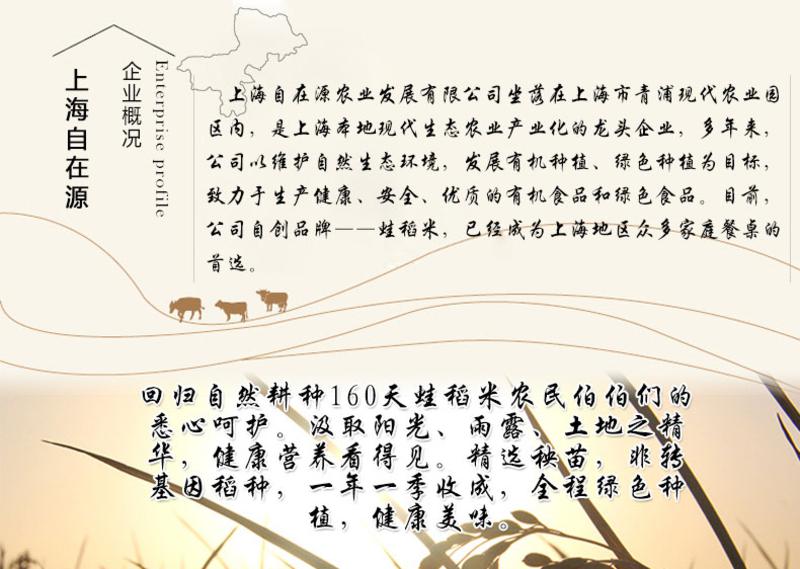 上海自在源
企业概况
Enterprise profile
上海自在源农业发展有限公司坐落在上海市青浦现代农业园
区内，是上海本地现代生态农业产业化的龙头企业，多年来，
公司以维护自然生态环境，发展有机种植、绿色种植为目标，
致力于生产健康、安全、优质的有机食品和绿色食品。目前，
公司自创品牌——蛙稻米，已经成为上海地区众多家庭餐桌的
首选。
回归自然耕种160天蛙稻米农民伯伯们的
悉心呵护。汲取阳光、雨露、土地之精
华，健康营养看得见。精选秧苗，非转
基因稻种，一年一季收成，全程绿色种
植，健康美味。